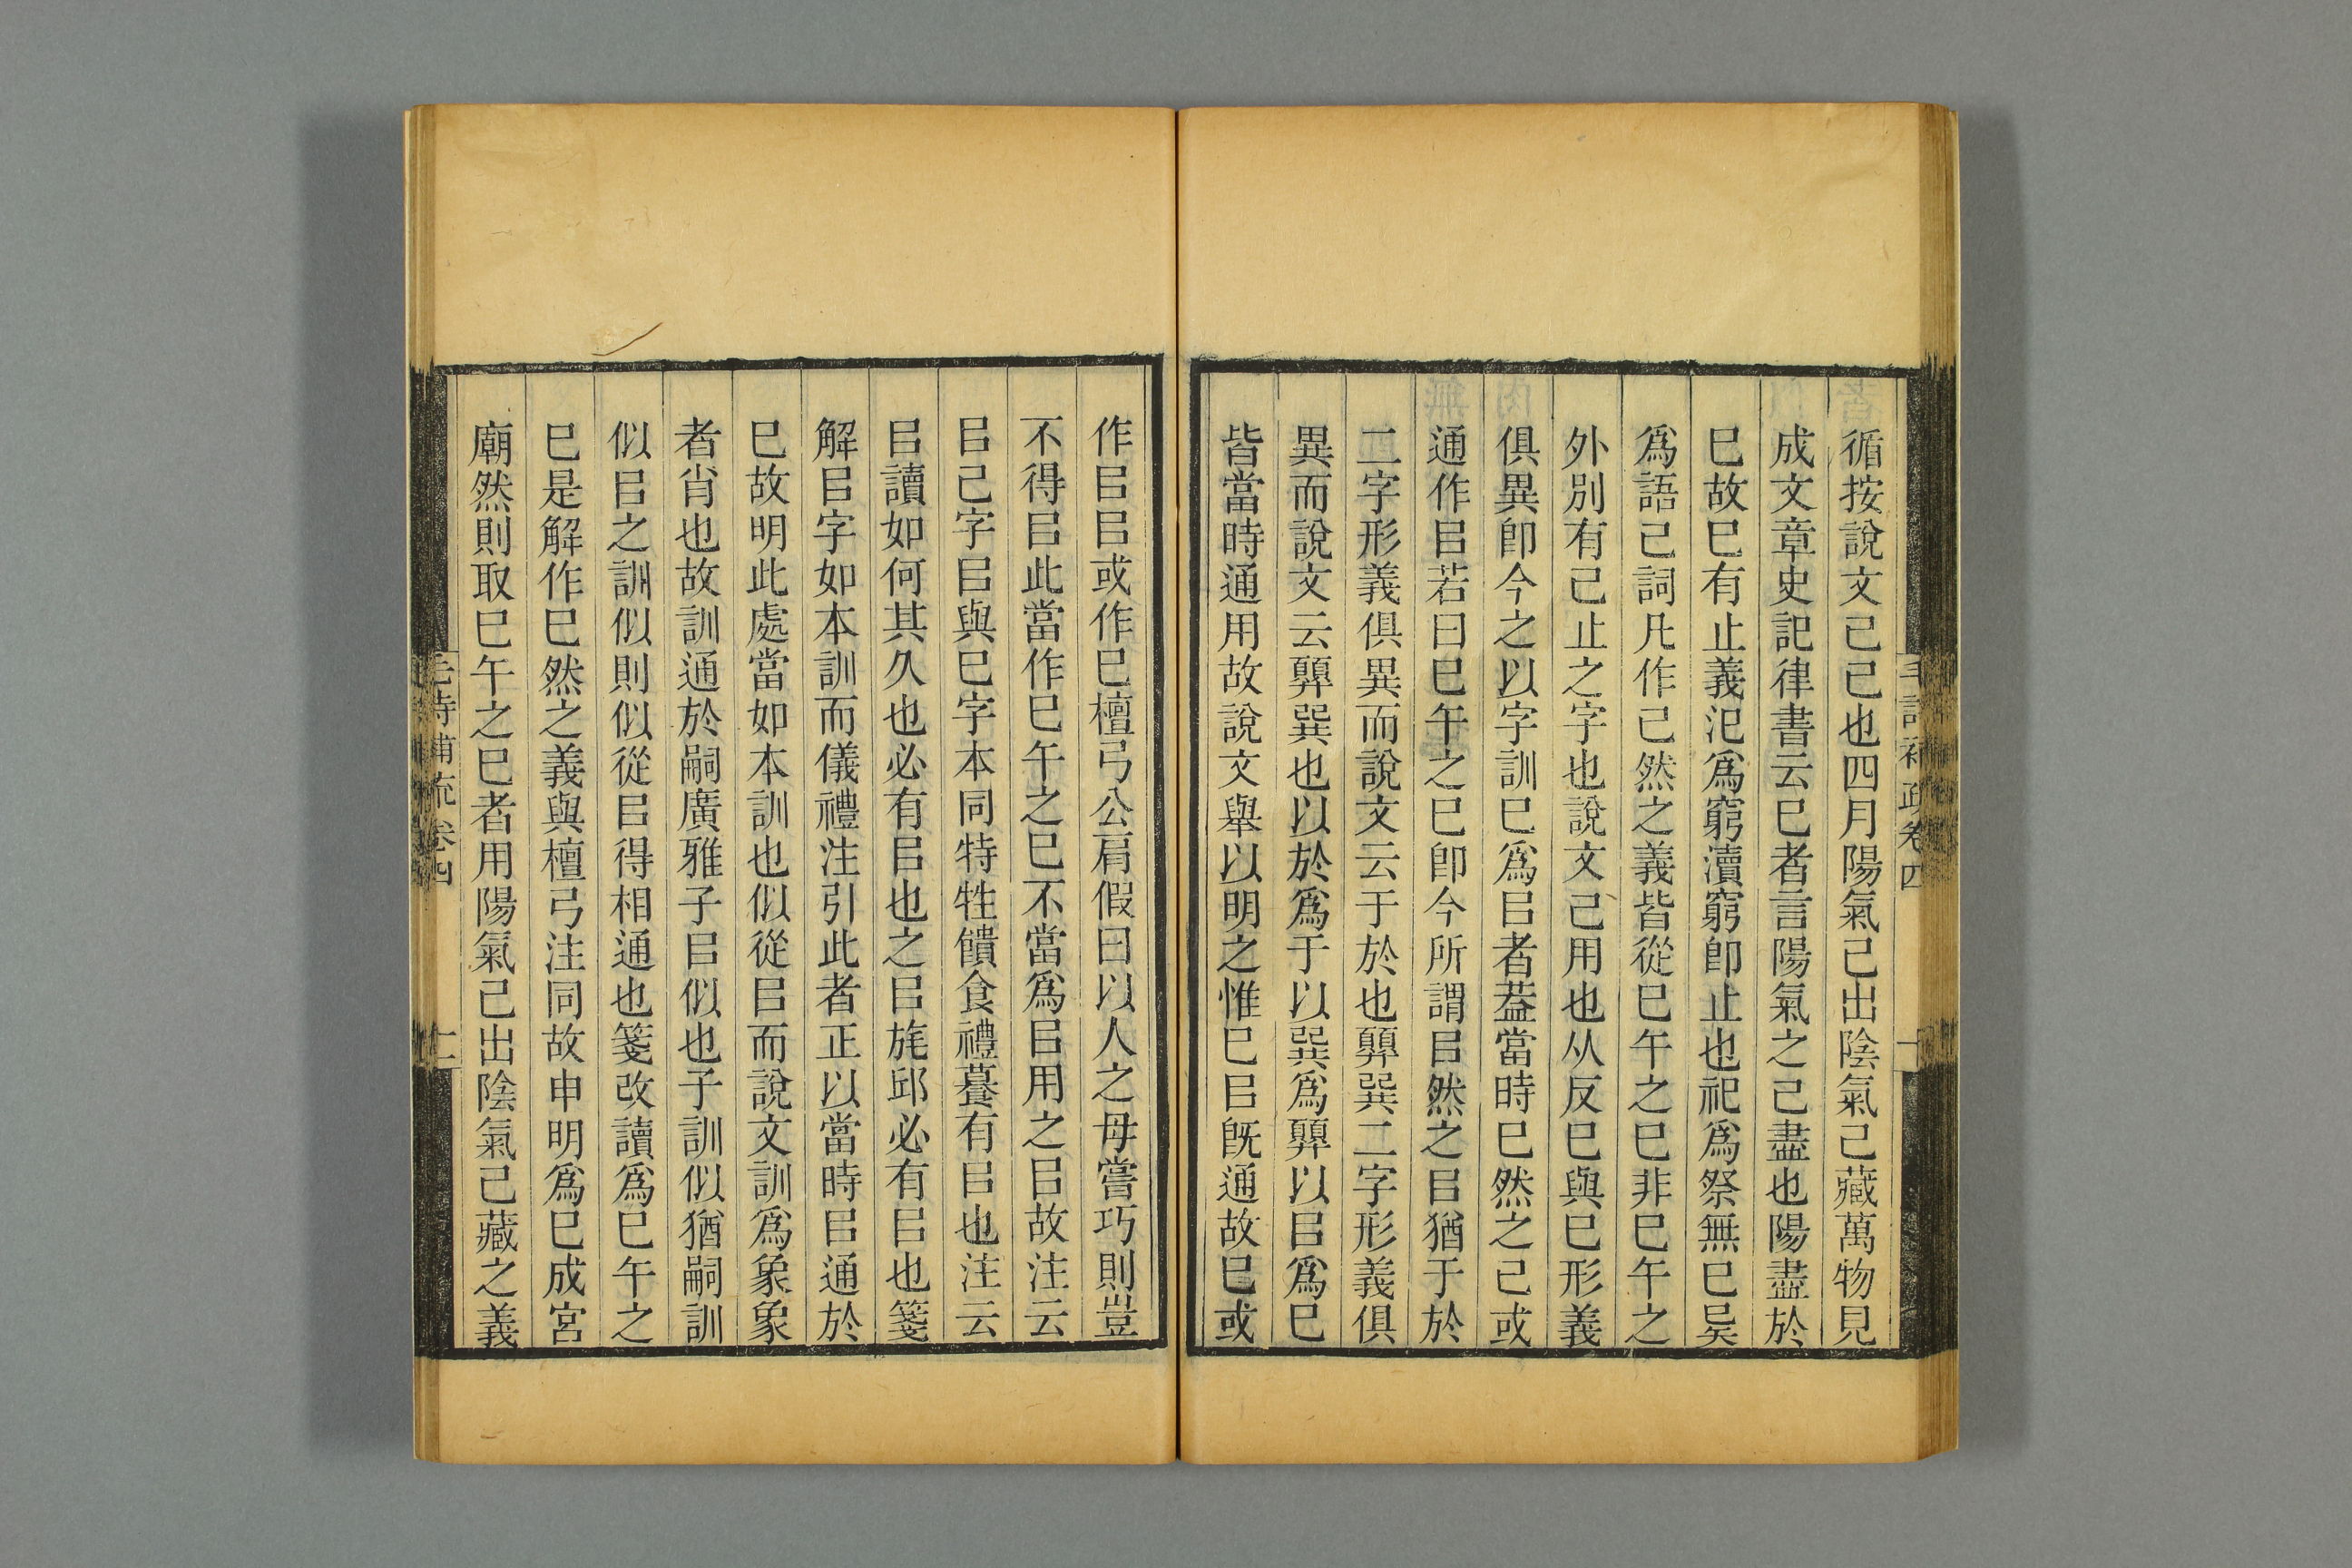 循按說文已已也四月陽氣已出陰氣已藏萬物見
成文章史記律書云巳者言陽氣之已盡也陽盡於
巳故巳有止義汜爲窮瀆窮卽止也祀爲祭無巳矣
爲語己詞凡作己然之義皆從巳午之巳非巳午之
外別有己止之字也說文㠯用也从反巳與巳形義
俱異卽今之以字訓巳爲㠯者葢當時巳然之己或
通作㠯若曰巳午之巳卽今所謂㠯然之㠯猶于於
二字形義俱異而說文云于於也顨巽二字形義俱
異而說文云顨巽也以於爲于以巽爲顨以㠯爲巳
皆當時通用故說文舉以明之惟巳㠯旣通故巳或
作㠯㠯或作巳檀弓公肩假曰以人之母嘗巧則豈
不得㠯此當作巳午之巳不當爲㠯用之㠯故注云
㠯己字㠯與巳字本同特牲饋食禮養有㠯也注云
㠯讀如何其久也必有㠯也之㠯旄邱必有㠯也箋
解㠯字如本訓而儀禮注引此者正以當時㠯通於
巳故明此處當如本訓也似從㠯而說文訓爲象象
者肖也故訓通於嗣廣雅子㠯似也子訓似猶嗣訓
似㠯之訓似則似從㠯得相通也箋改讀爲巳午之
巳是解作巳然之義與檀弓注同故申明爲巳成宮
廟然則取巳午之巳者用陽氣己出陰氣己藏之義
毛詩補疏卷四
毛詩補疏卷四